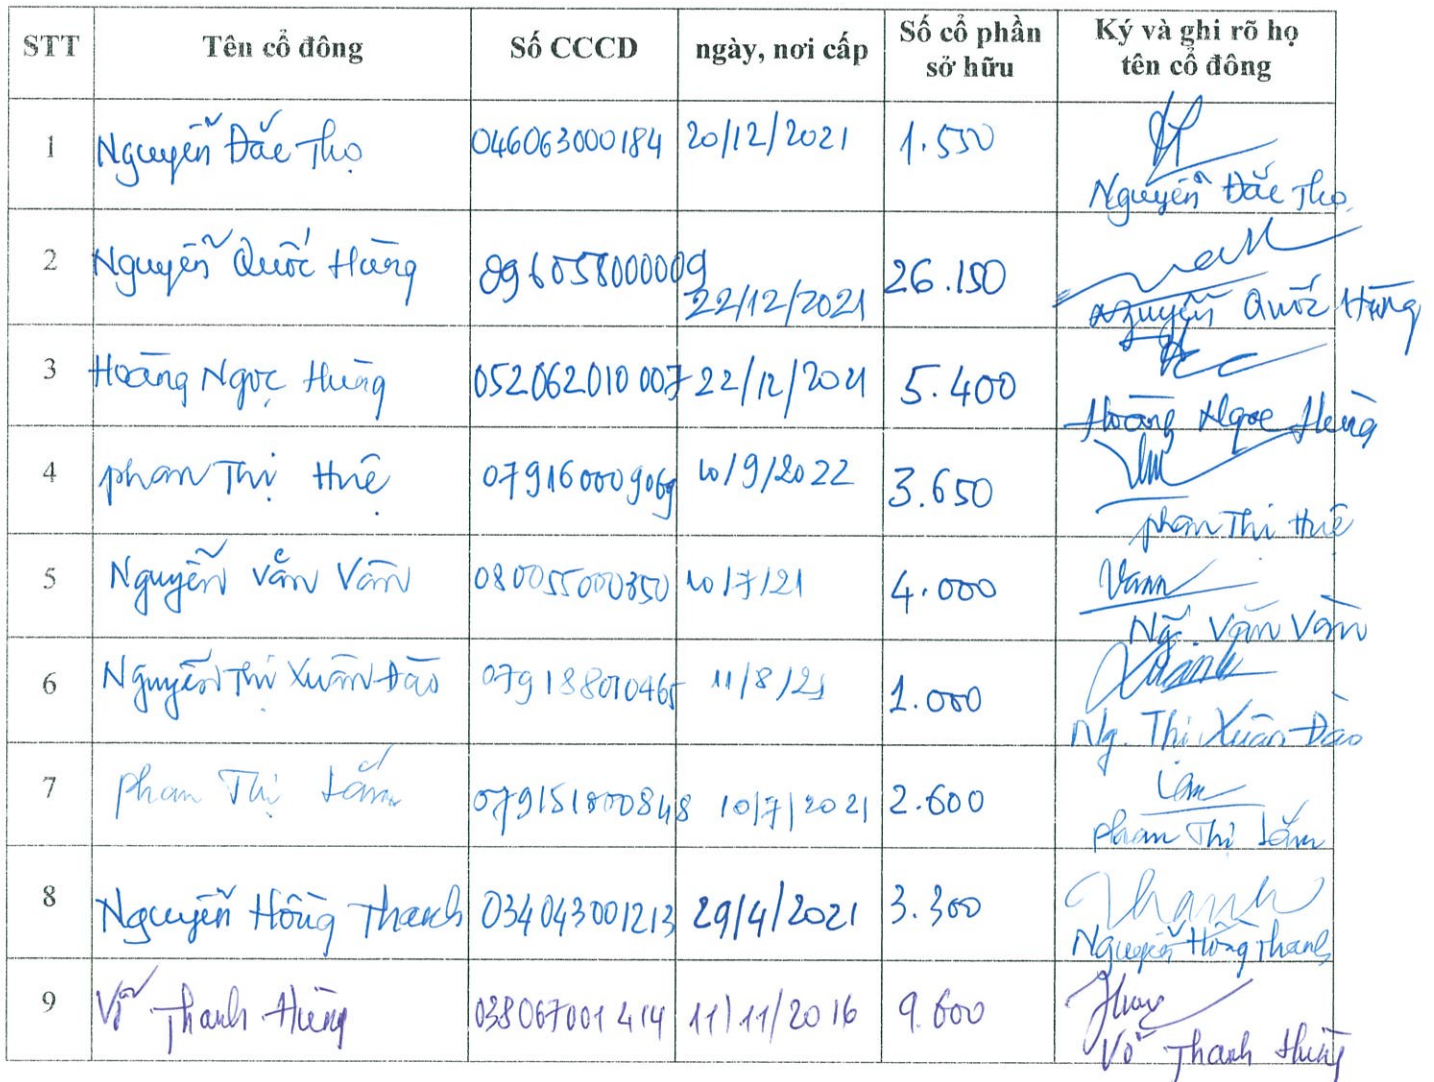 STT Tên cổ đông Số CCCD ngày, nơi cấp Số cổ phần sở hữu Ký và ghi rõ họ tên cổ đông
1 Nguyễn Đắc Thọ 046063000184 20/12/2021 1.550
Nguyễn Đắc Thọ
2 Nguyễn Quốc Hùng 096058000009 22/12/2021 26.150
Nguyễn Quốc Hùng
3 Hoàng Ngọc Hùng 052062010007 22/12/2021 5.400
Hoàng Ngọc Hùng
4 phan Thị Huệ 079160009069 10/9/2022 3.650
phan Thị Huệ
5 Nguyễn Văn Vân 080055000350 10/7/21 4.000
Ng. Văn Vân
6 Nguyễn Thị Xuân Đào 079188010465 11/8/21 1.000
Ng. Thị Xuân Đào
7 phan Thị Lắm 079151800848 10/7/2021 2.600
phan Thị Lắm
8 Nguyễn Hồng Thanh 034043001213 29/4/2021 3.300
Thanh
Nguyễn Hồng Thanh
9 Võ Thanh Hùng 038067001414 11/11/2016 9.600
Võ Thanh Hùng